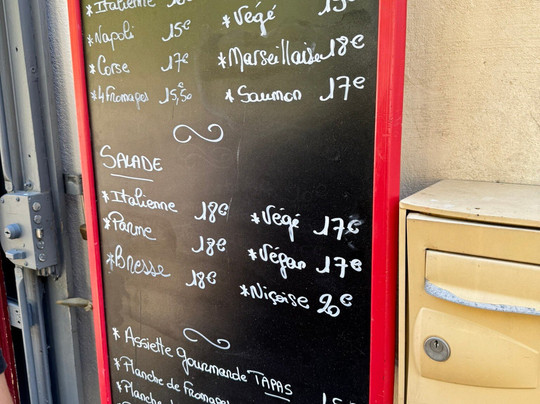 *Italienne
*Napoli 15€
*Corse 17€
*4 Fromages 15,50
*Végé
*Marseillaise 18€
*Saumon 17€
SALADE
*Italienne 18€
*Parme 18€
*Bresse 18€
*Végé 17€
*Végan 17€
*Niçoise 20€
*Assiette gourmande TAPAS
*Planche de Fromages
*Planche